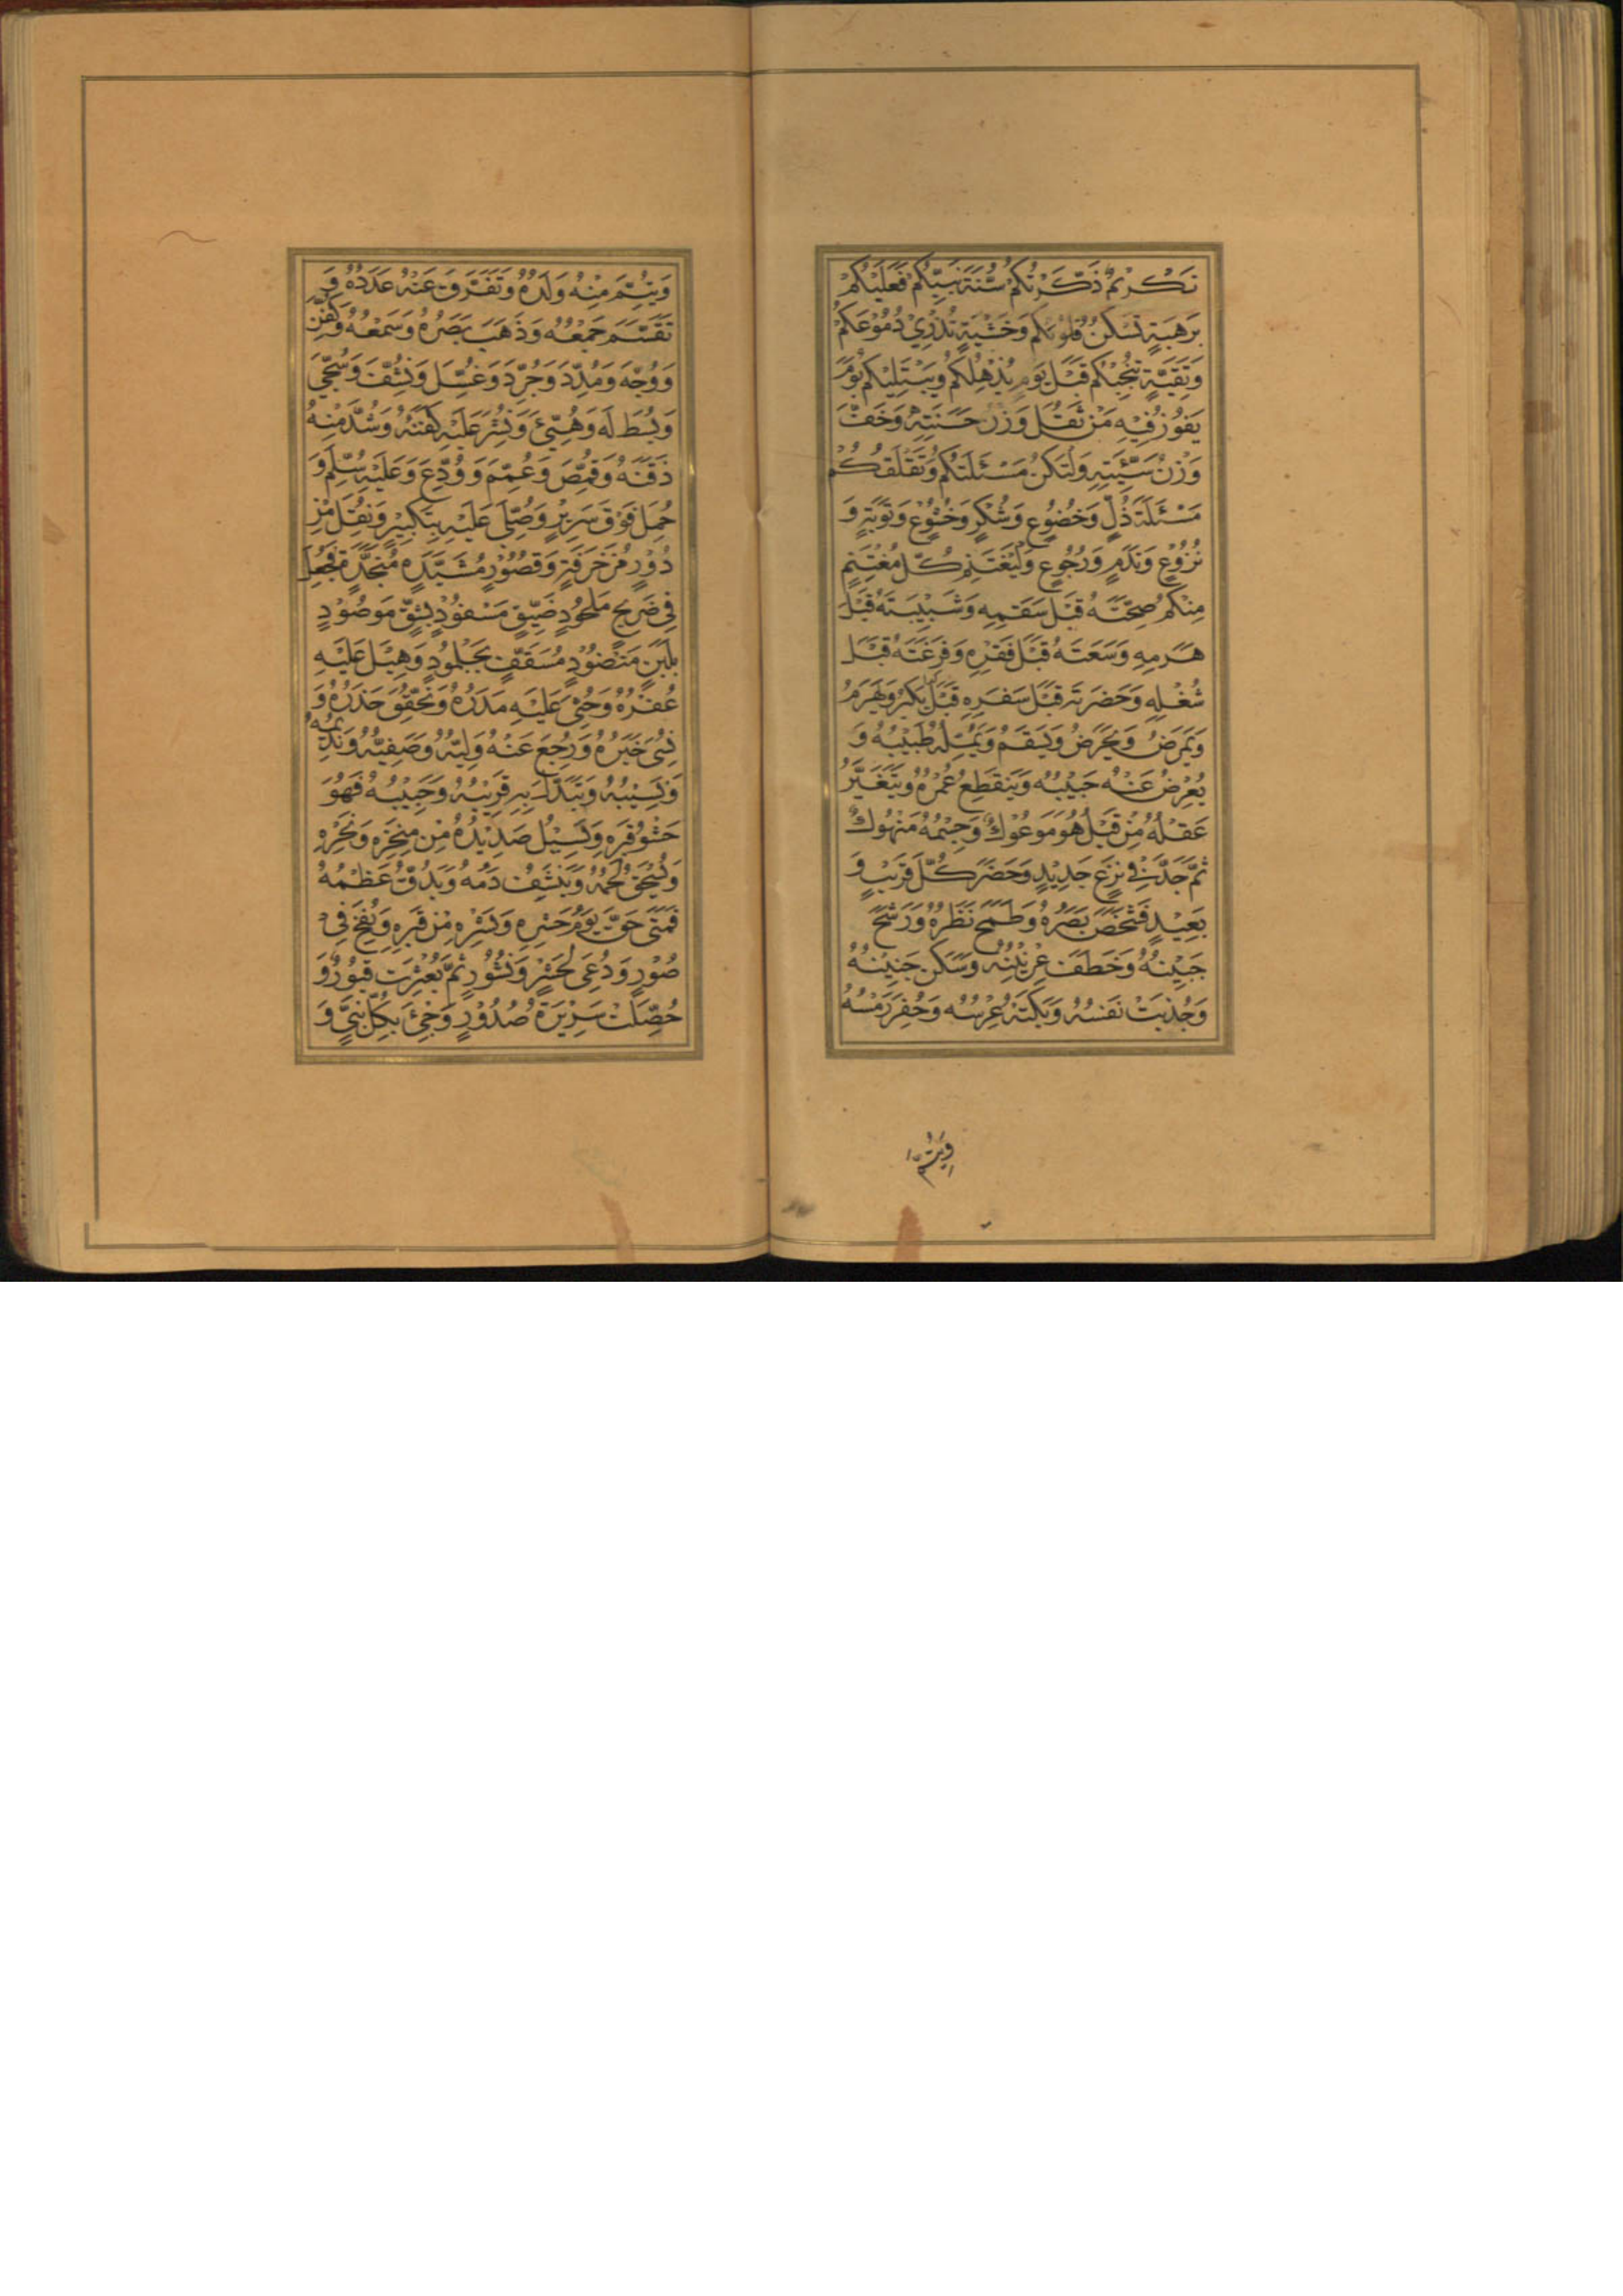 نَكُرْتُمْ ذَكَّرْتُكُمْ سُنَّةَ نَبِيِّكُمْ فَعَلَيْكُمْ
بِرَهْبَةٍ تَسْكُنُ قُلُوبَكُمْ وَخَشْيَةٍ تُذْرِيْ دُمُوْعَكُمْ
وَتَقِيَّةٍ تُنْجِيْكُمْ قَبْلَ يَوْمٍ يُذْهِلُكُمْ وَيَبْتَلِيْكُمْ يَوْمَ
يَفُوْزُ فِيْهِ مَنْ ثَقُلَ وَزْنُ حَسَنَتِهِ وَخَفَّ
وَزْنُ سَيِّئَتِهِ وَلْتَكُنْ مَسْئَلَتُكُمْ وَتَمَلُّقُكُمْ
مَسْئَلَةَ ذُلٍّ وَخُضُوْعٍ وَشُكْرٍ وَخُشُوْعٍ وَتَوْبَةٍ وَ
نُزُوْعٍ وَنَدَمٍ وَرُجُوْعٍ وَلْيَغْتَنِمْ كُلُّ مُغْتَنِمٍ
مِنْكُمْ صِحَّتَهُ قَبْلَ سَقَمِهِ وَشَبِيْبَتَهُ قَبْلَ
هَرَمِهِ وَسَعَتَهُ قَبْلَ فَقْرِهِ وَفَرْغَتَهُ قَبْلَ
شُغْلِهِ وَحَضَرَتَهُ قَبْلَ سَفَرِهِ قَبْلَ يَكْبُرُ وَيَهْرَمُ
وَيَمْرَضُ وَيَحْرَضُ وَيَسْقَمُ وَيُمِلُّهُ طَبِيْبُهُ وَ
يُعْرِضُ عَنْهُ حَبِيْبُهُ وَيَنْقَطِعُ عُمْرُهُ وَيَتَغَيَّرُ
عَقْلُهُ مِنْ قَبْلُ هُوَ مَوْعُوْكٌ وَجِسْمُهُ مَنْهُوْكٌ
ثُمَّ جَدَّ فِيْ نَزْعٍ جَدِيْدٍ وَحَضَرَ كُلُّ قَرِيْبٍ وَ
بَعِيْدٍ فَشَخَصَ بَصَرُهُ وَطَمَحَ نَظَرُهُ وَرَشَحَ
جَبِيْنُهُ وَخَطَفَ عِرْنِيْنُهُ وَسَكَنَ حَنِيْنُهُ
وَجُذِبَتْ نَفْسُهُ وَبَكَتْهُ عِرْسُهُ وَحُفِرَ رَمْسُهُ
وَيَتُمَ
وَيُتِّمَ مِنْهُ وَلَدُهُ وَتَفَرَّقَ عَنْهُ عَدَدُهُ وَ
تَقَسَّمَ جَمْعُهُ وَذَهَبَ بَصَرُهُ وَسَمْعُهُ وَكُفِّنَ
وَوُجِّهَ وَمُدِّدَ وَجُرِّدَ وَغُسِّلَ وَنُشِّفَ وَسُجِّيَ
وَبُسِطَ لَهُ وَهُيِّئَ وَنُشِرَ عَلَيْهِ كَفَنُهُ وَشُدَّ مِنْهُ
ذَقَنُهُ وَقُمِّصَ وَعُمِّمَ وَوُدِّعَ وَعَلَيْهِ سُلِّمَ وَ
حُمِلَ فَوْقَ سَرِيْرٍ وَصُلِّيَ عَلَيْهِ بِتَكْبِيْرٍ وَنُقِلَ مِنْ
دُوْرٍ مُزَخْرَفَةٍ وَقُصُوْرٍ مُشَيَّدَةٍ مُنَجَّدَةٍ فَجُعِلَ
فِيْ ضَرِيْحٍ مَلْحُوْدٍ ضَيِّقٍ مَسْفُوْدٍ بِشِقٍّ مَوْصُوْدٍ
بِلَبِنٍ مَنْضُوْدٍ مُسَقَّفٍ بِجَلْمُوْدٍ وَهِيْلَ عَلَيْهِ
عُفْرُهُ وَحُثِيَ عَلَيْهِ مَدَرُهُ وَتُحُقِّقَ حَذَرُهُ وَ
نُسِيَ خَبَرُهُ وَرَجَعَ عَنْهُ وَلِيُّهُ وَصَفِيُّهُ وَنَدِيْمُهُ
وَنَسِيْبُهُ وَتَبَدَّلَ بِهِ قَرِيْبُهُ وَحَبِيْبُهُ فَهُوَ
حَشْوُ قَبْرِهِ وَيَسِيْلُ صَدِيْدُهُ مِنْ مِنْخَرِهِ وَنَحْرِهِ
وَيُسْحَقُ لَحْمُهُ وَيَنْشَفُ دَمُهُ وَيَدُقُّ عَظْمُهُ
فَمَتَى حَقَّ يَوْمُ حَشْرِهِ وَنَشْرِهِ مِنْ قَبْرِهِ وَيُنْفَخُ فِيْ
صُوْرٍ وَدُعِيَ لِحَشْرٍ وَنُشُوْرٍ ثُمَّ بُعْثِرَتْ قُبُوْرٌ وَ
حُصِّلَتْ سَرِيْرَةُ صُدُوْرٍ وَجِيْءَ بِكُلِّ نَبِيٍّ وَ